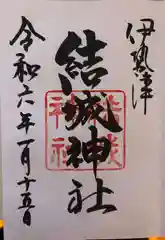 伊勢津
結城神社
令和六年一月十五日